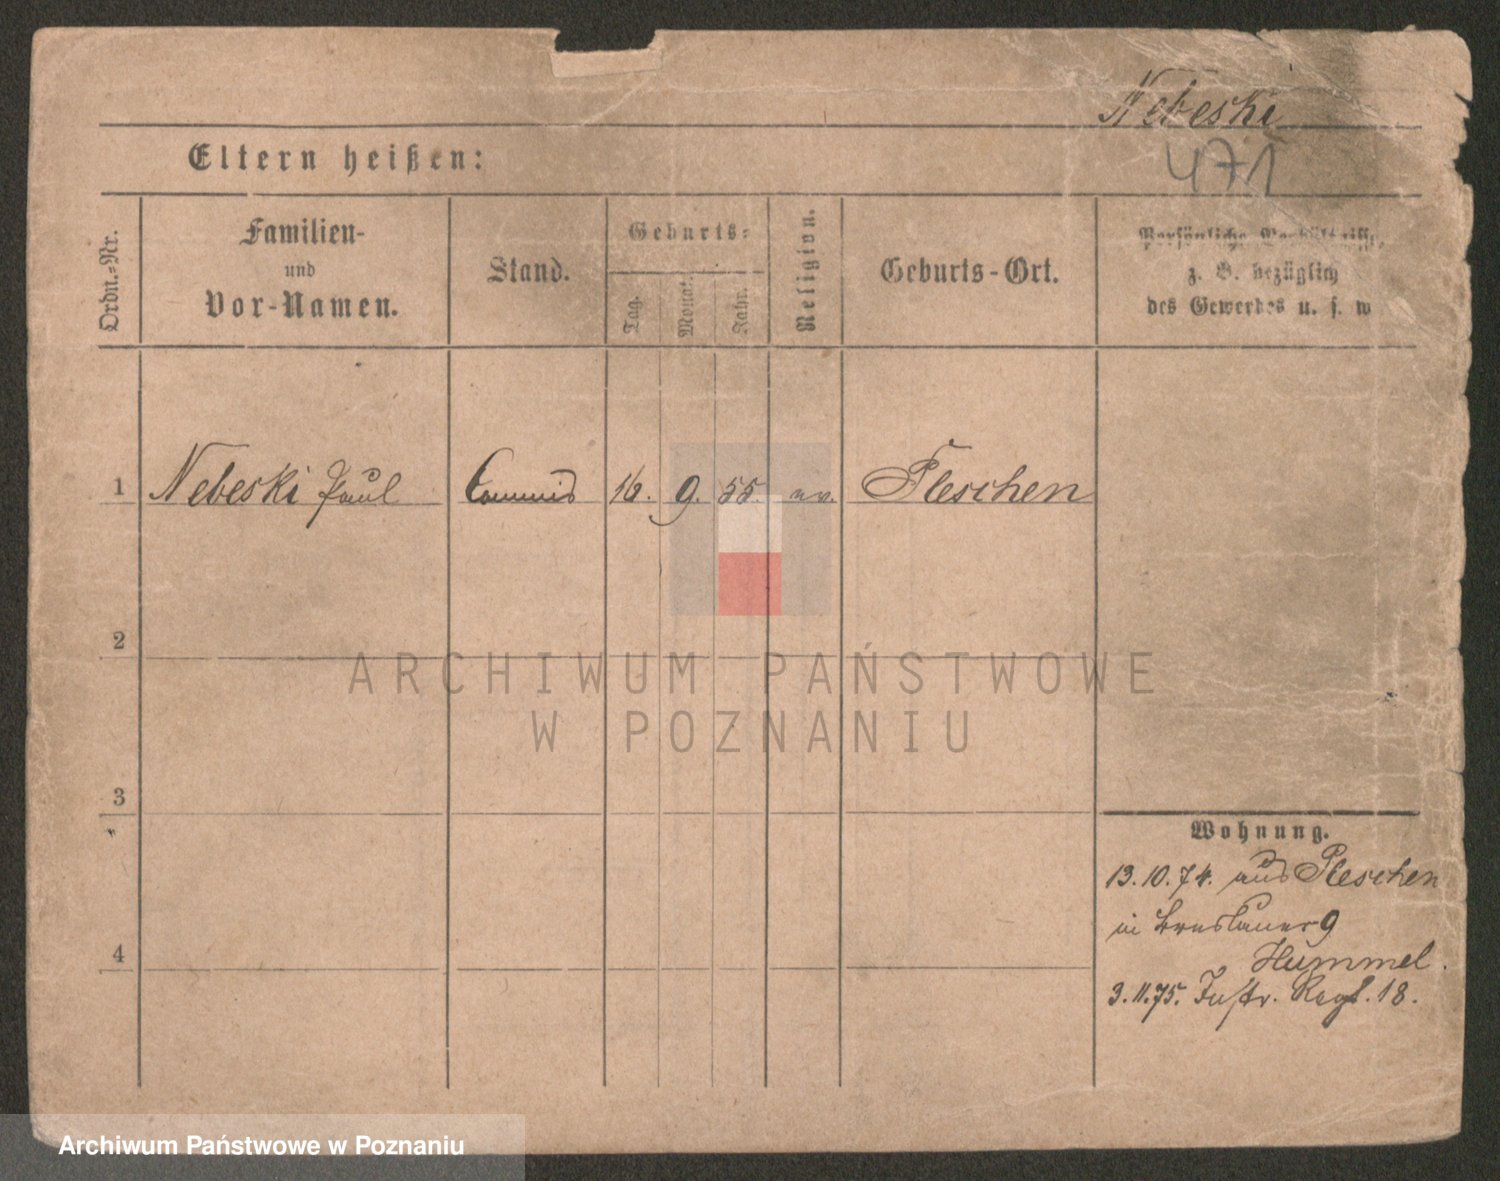 Nebeski
471
Eltern heißen:
Ordn.-Nr.
Familien-
und
Vor-Namen.
Stand.
Geburts-
Tag.
Monat.
Jahr.
Religion.
Geburts-Ort.
Persönliche Verhältnisse
z. B. bezüglich
des Gewerbes u. s. w
1 Nebeski Paul Commis 16. 9. 55. ev. Pleschen
2
3
4
Wohnung.
13.10.74. aus Pleschen
in Breslauer 9
Hummel.
3.11.75. Inftr. Regt. 18.
ARCHIWUM PAŃSTWOWE
W POZNANIU
Archiwum Państwowe w Poznaniu